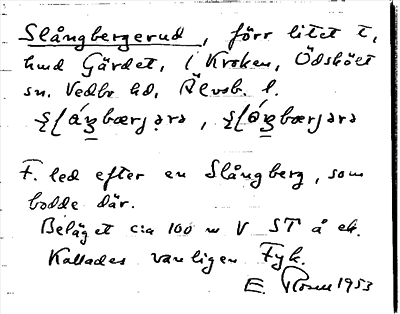 Slångbergerud, förr litet t,
hmd Gärdet, i Kroken, Ödsköet
sn. Vedbo hd, Älvsb. l.
F. led efter en Slångberg, som
bodde där.
Beläget c:a 100 m V ST å ek.
Kallades vanligen Fyk.
E. Rosell 1953